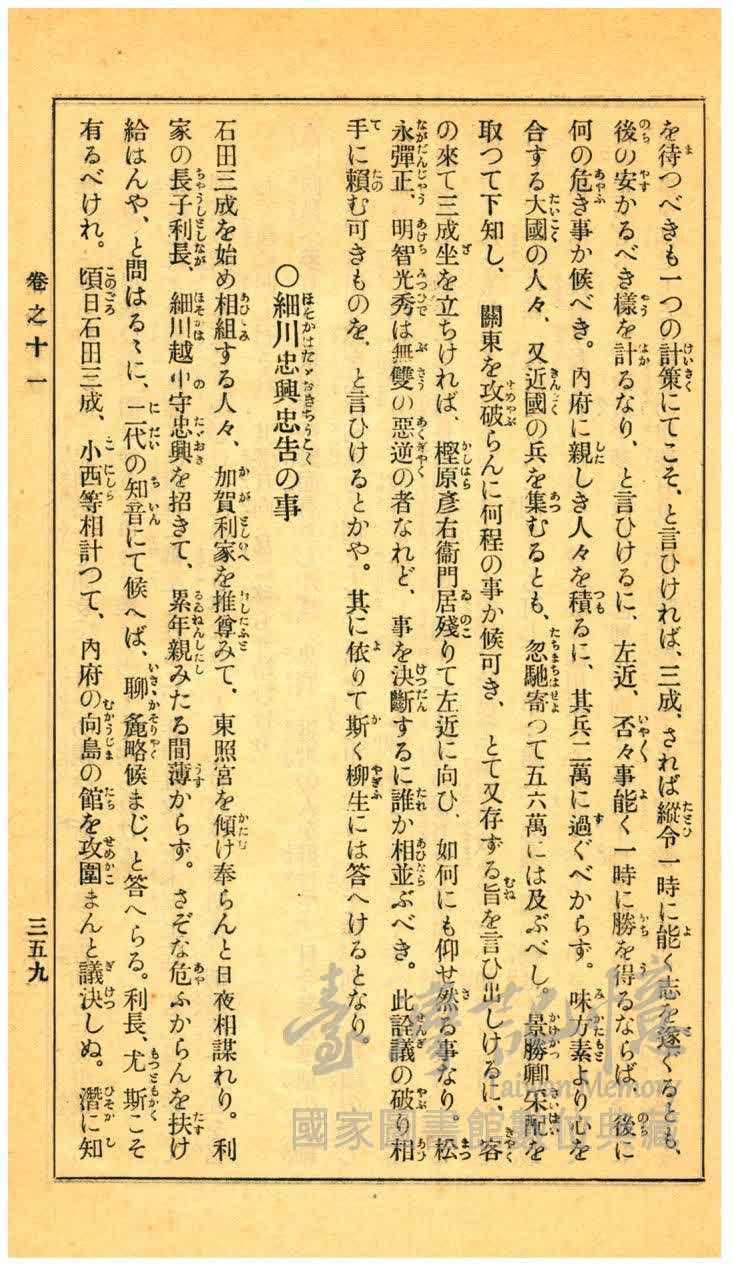 を待つべきも一つの計策にてこそ、と言ひければ、三成、されば縱令一時に能く志を遂ぐるとも、
後の安かるべき樣を計るなり、と言ひけるに、左近、否々事能く一時に勝を得るならば、後に
何の危き事か候べき。內府に親しき人々を積るに、其兵二萬に過ぐべからず。味方素より心を
合する大國の人々、又近國の兵を集むるとも、忽馳寄つて五六萬には及ぶべし。景勝卿采配を
取つて下知し、關東を攻破らんに何程の事か候可き、とて又存ずる旨を言ひ出しけるに、客
の來て三成坐を立ちければ、樫原彥右衞門居殘りて左近に向ひ、如何にも仰せ然る事なり。松
永彈正、明智光秀は無雙の惡逆の者なれど、事を決斷するに誰か相並ぶべき。此詮議の破り相
手に賴む可きものを、と言ひけるとかや。其に依りて斯く柳生には答へけるとなり。
○細川忠興忠吿の事
石田三成を始め相組する人々、加賀利家を推尊みて、東照宮を傾け奉らんと日夜相謀れり。利
家の長子利長、細川越中守忠興を招きて、累年親みたる間薄からず。さぞな危ふからんを扶け
給はんや、と問はるゝに、二代の知音にて候へば、聊麁略候まじ、と答へらる。利長、尤斯こそ
有るべけれ。頃日石田三成、小西等相計つて、內府の向島の館を攻圍まんと議決しぬ。潛に知
卷之十一
三五九
臺灣記憶
Taiwan Memory
國家圖書館數位典藏